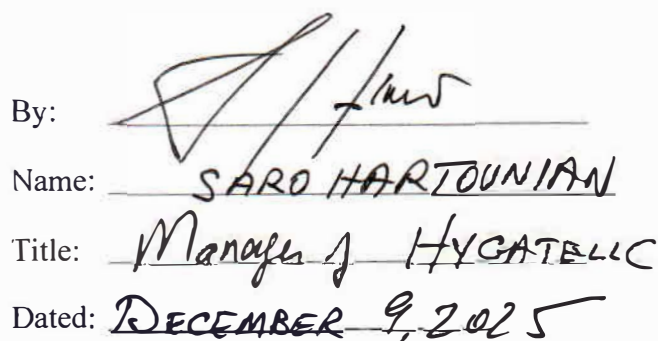 By:
Name: SARO HARTOUNIAN
Title: Manager of HYGATE LLC
Dated: DECEMBER 9, 2025